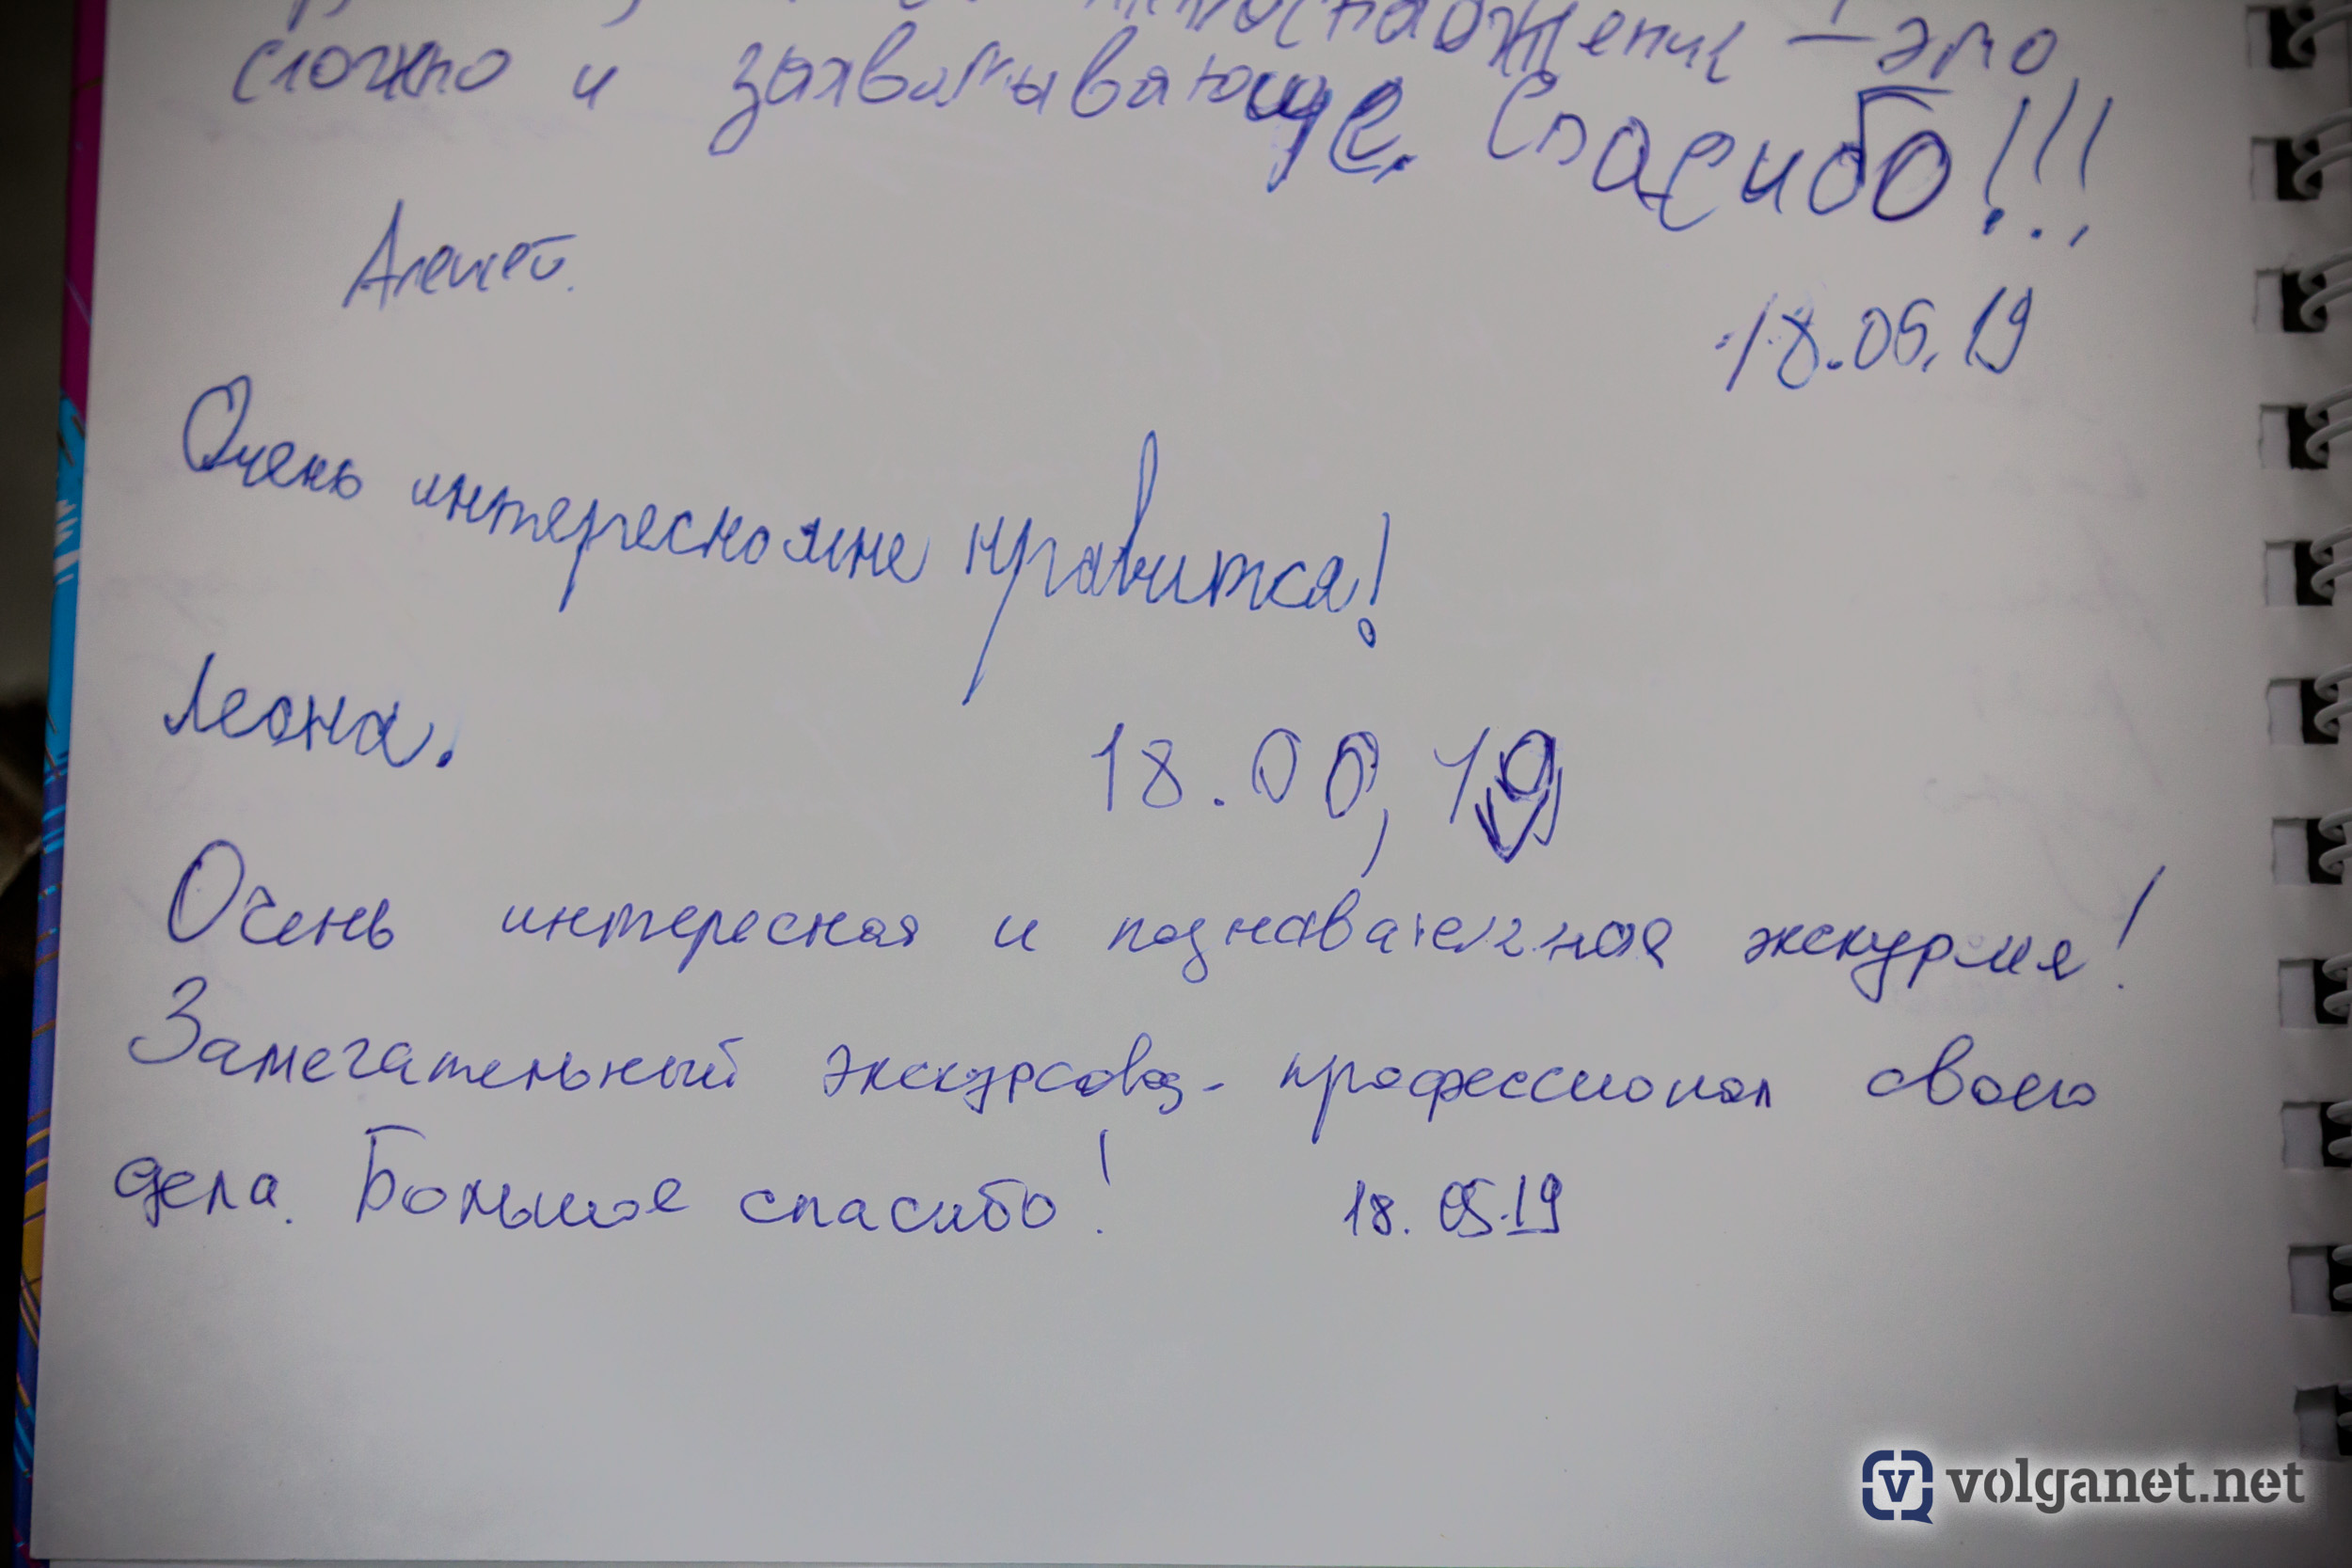 – это
сложно и захватывающе. Спасибо!!!
Алексей.
18.05.19
Очень интересно мне нравитса!
Леона.
18.00,19
Очень интересная и познавательная экскурсия!
Замечательный экскурсовод - профессионал своего
дела. Большое спасибо! 18.05.19
volganet.net